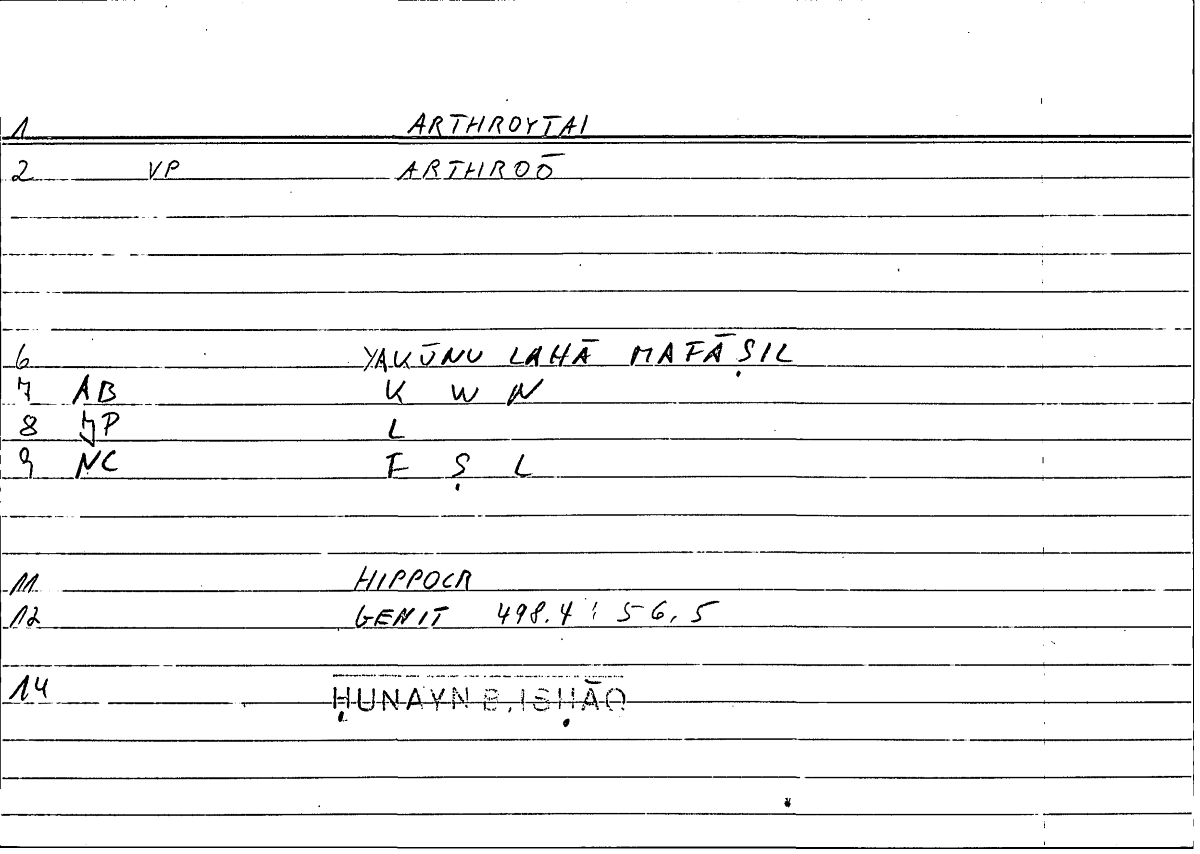 1 ARTHROYTAI
2 VP ARTHROŌ
6 YAKŪNU LAHĀ MAFĀṢIL
7 AB K W N
8 JP L
9 NC F Ṣ L
11 HIPPOCR
12 GENIT 498.4 : 56,5
14 ḤUNAYN B. ISḤĀQ